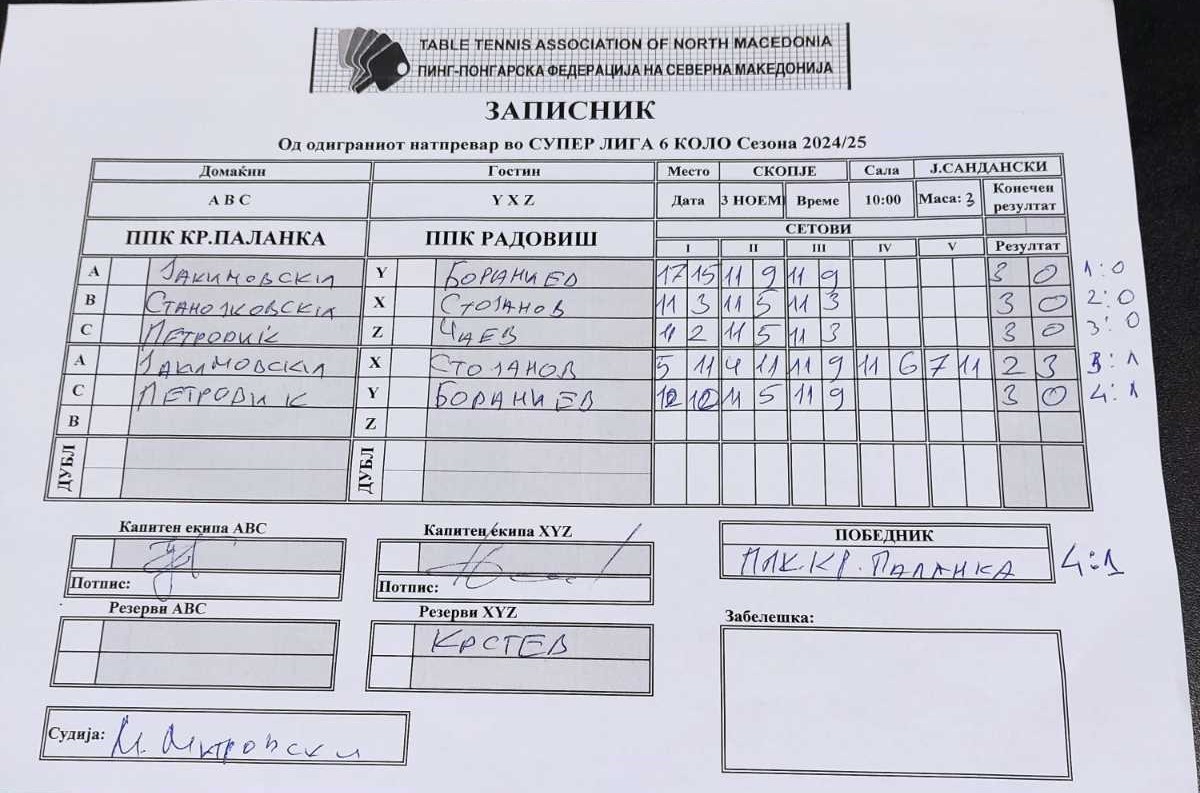 TABLE TENNIS ASSOCIATION OF NORTH MACEDONIA
ПИНГ-ПОНГАРСКА ФЕДЕРАЦИЈА НА СЕВЕРНА МАКЕДОНИЈА
ЗАПИСНИК
Од одиграниот натпревар во СУПЕР ЛИГА 6 КОЛО Сезона 2024/25
Домаќин Гостин Место СКОПЈЕ Сала Ј.САНДАНСКИ
А В С Y X Z Дата 3 НОЕМ Време 10:00 Маса: 3 Конечен резултат
ППК КР.ПАЛАНКА ППК РАДОВИШ СЕТОВИ
I II III IV V Резултат
A ЈАКИМОВСКИ Y БОРАНИЕВ 17 15 11 9 11 9 3 0 1:0
B СТАНОЈКОВСКИ X СТОЈАНОВ 11 3 11 5 11 3 3 0 2:0
C ПЕТРОВИЌ Z ЧАЕВ 11 2 11 5 11 3 3 0 3:0
A ЈАКИМОВСКИ X СТОЈАНОВ 5 11 4 11 11 9 11 6 7 11 2 3 3:1
C ПЕТРОВИК Y БОРАНИЕВ 12 10 11 5 11 9 3 0 4:1
B Z
ДУБЛ ДУБЛ
Капитен екипа АВС Капитен екипа XYZ ПОБЕДНИК
ППК.КР.ПАЛАНКА 4:1
Потпис: Потпис:
Резерви АВС Резерви XYZ Забелешка:
КРСТЕВ
Судија: М. Митровски